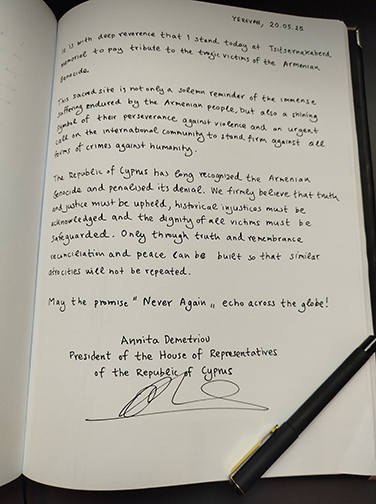 YEREVAN, 20.05.25
It is with deep reverence that I stand today at Tsitsernakaberd
memorial to pay tribute to the tragic victims of the Armenian
Genocide.
This sacred site is not only a solemn reminder of the immense
suffering endured by the Armenian people, but also a shining
symbol of their perseverance against violence and an urgent
call on the international community to stand firm against all
forms of crimes against humanity.
The Republic of Cyprus has long recognized the Armenian
Genocide and penalised its denial. We firmly believe that truth
and justice must be upheld, historical injustices must be
acknowledged and the dignity of all victims must be
safeguarded. Only through truth and remembrance
reconciliation and peace can be built so that similar
atrocities will not be repeated.
May the promise " Never Again „ echo across the globe!
Annita Demetriou
President of the House of Representatives
of the Republic of Cyprus